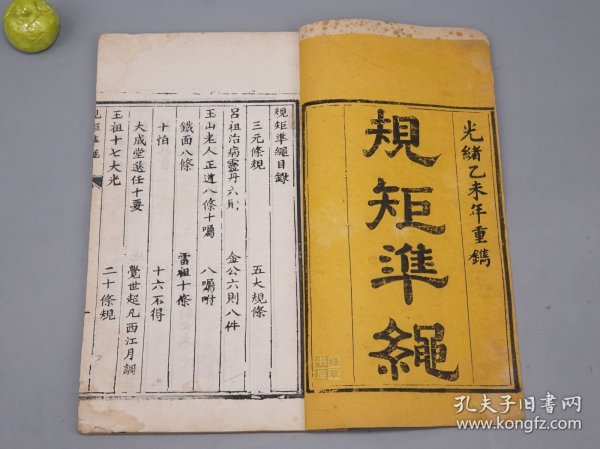 光緒乙未年重鐫
規矩準繩
規矩準繩目錄
三元條規
五大規條
呂祖治病靈丹六則
金公六則八件
玉山老人正道八條十囑
八囑咐
鐵面八條
雷祖十條
十怕
十六不得
大成堂選任十要
覺世超凡西江月調
王祖十七大光
二十條規
規矩準繩
孔夫子旧书网
www.kongfz.com